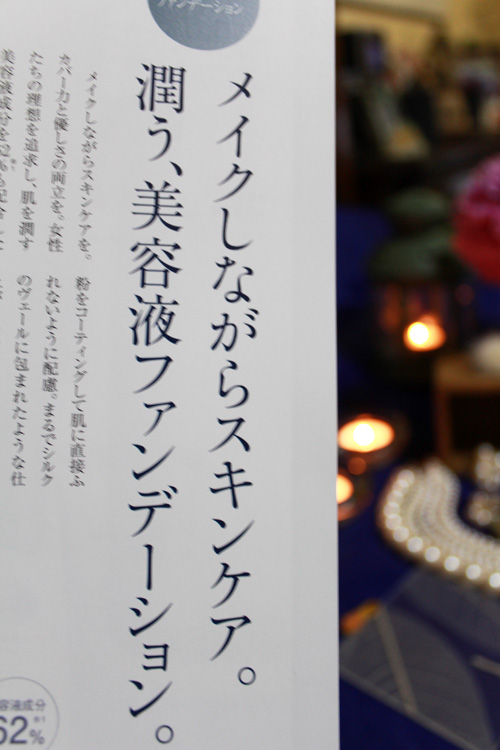 ファンデーション
メイクしながらスキンケア。
潤う、美容液ファンデーション。
メイクしながらスキンケアを。
カバー力と優しさの両立を。女性
たちの理想を追求し、肌を潤す
粉をコーティングして肌に直接ふ
れないように配慮。まるでシルク
のヴェールに包まれたような仕
容液成分
62%